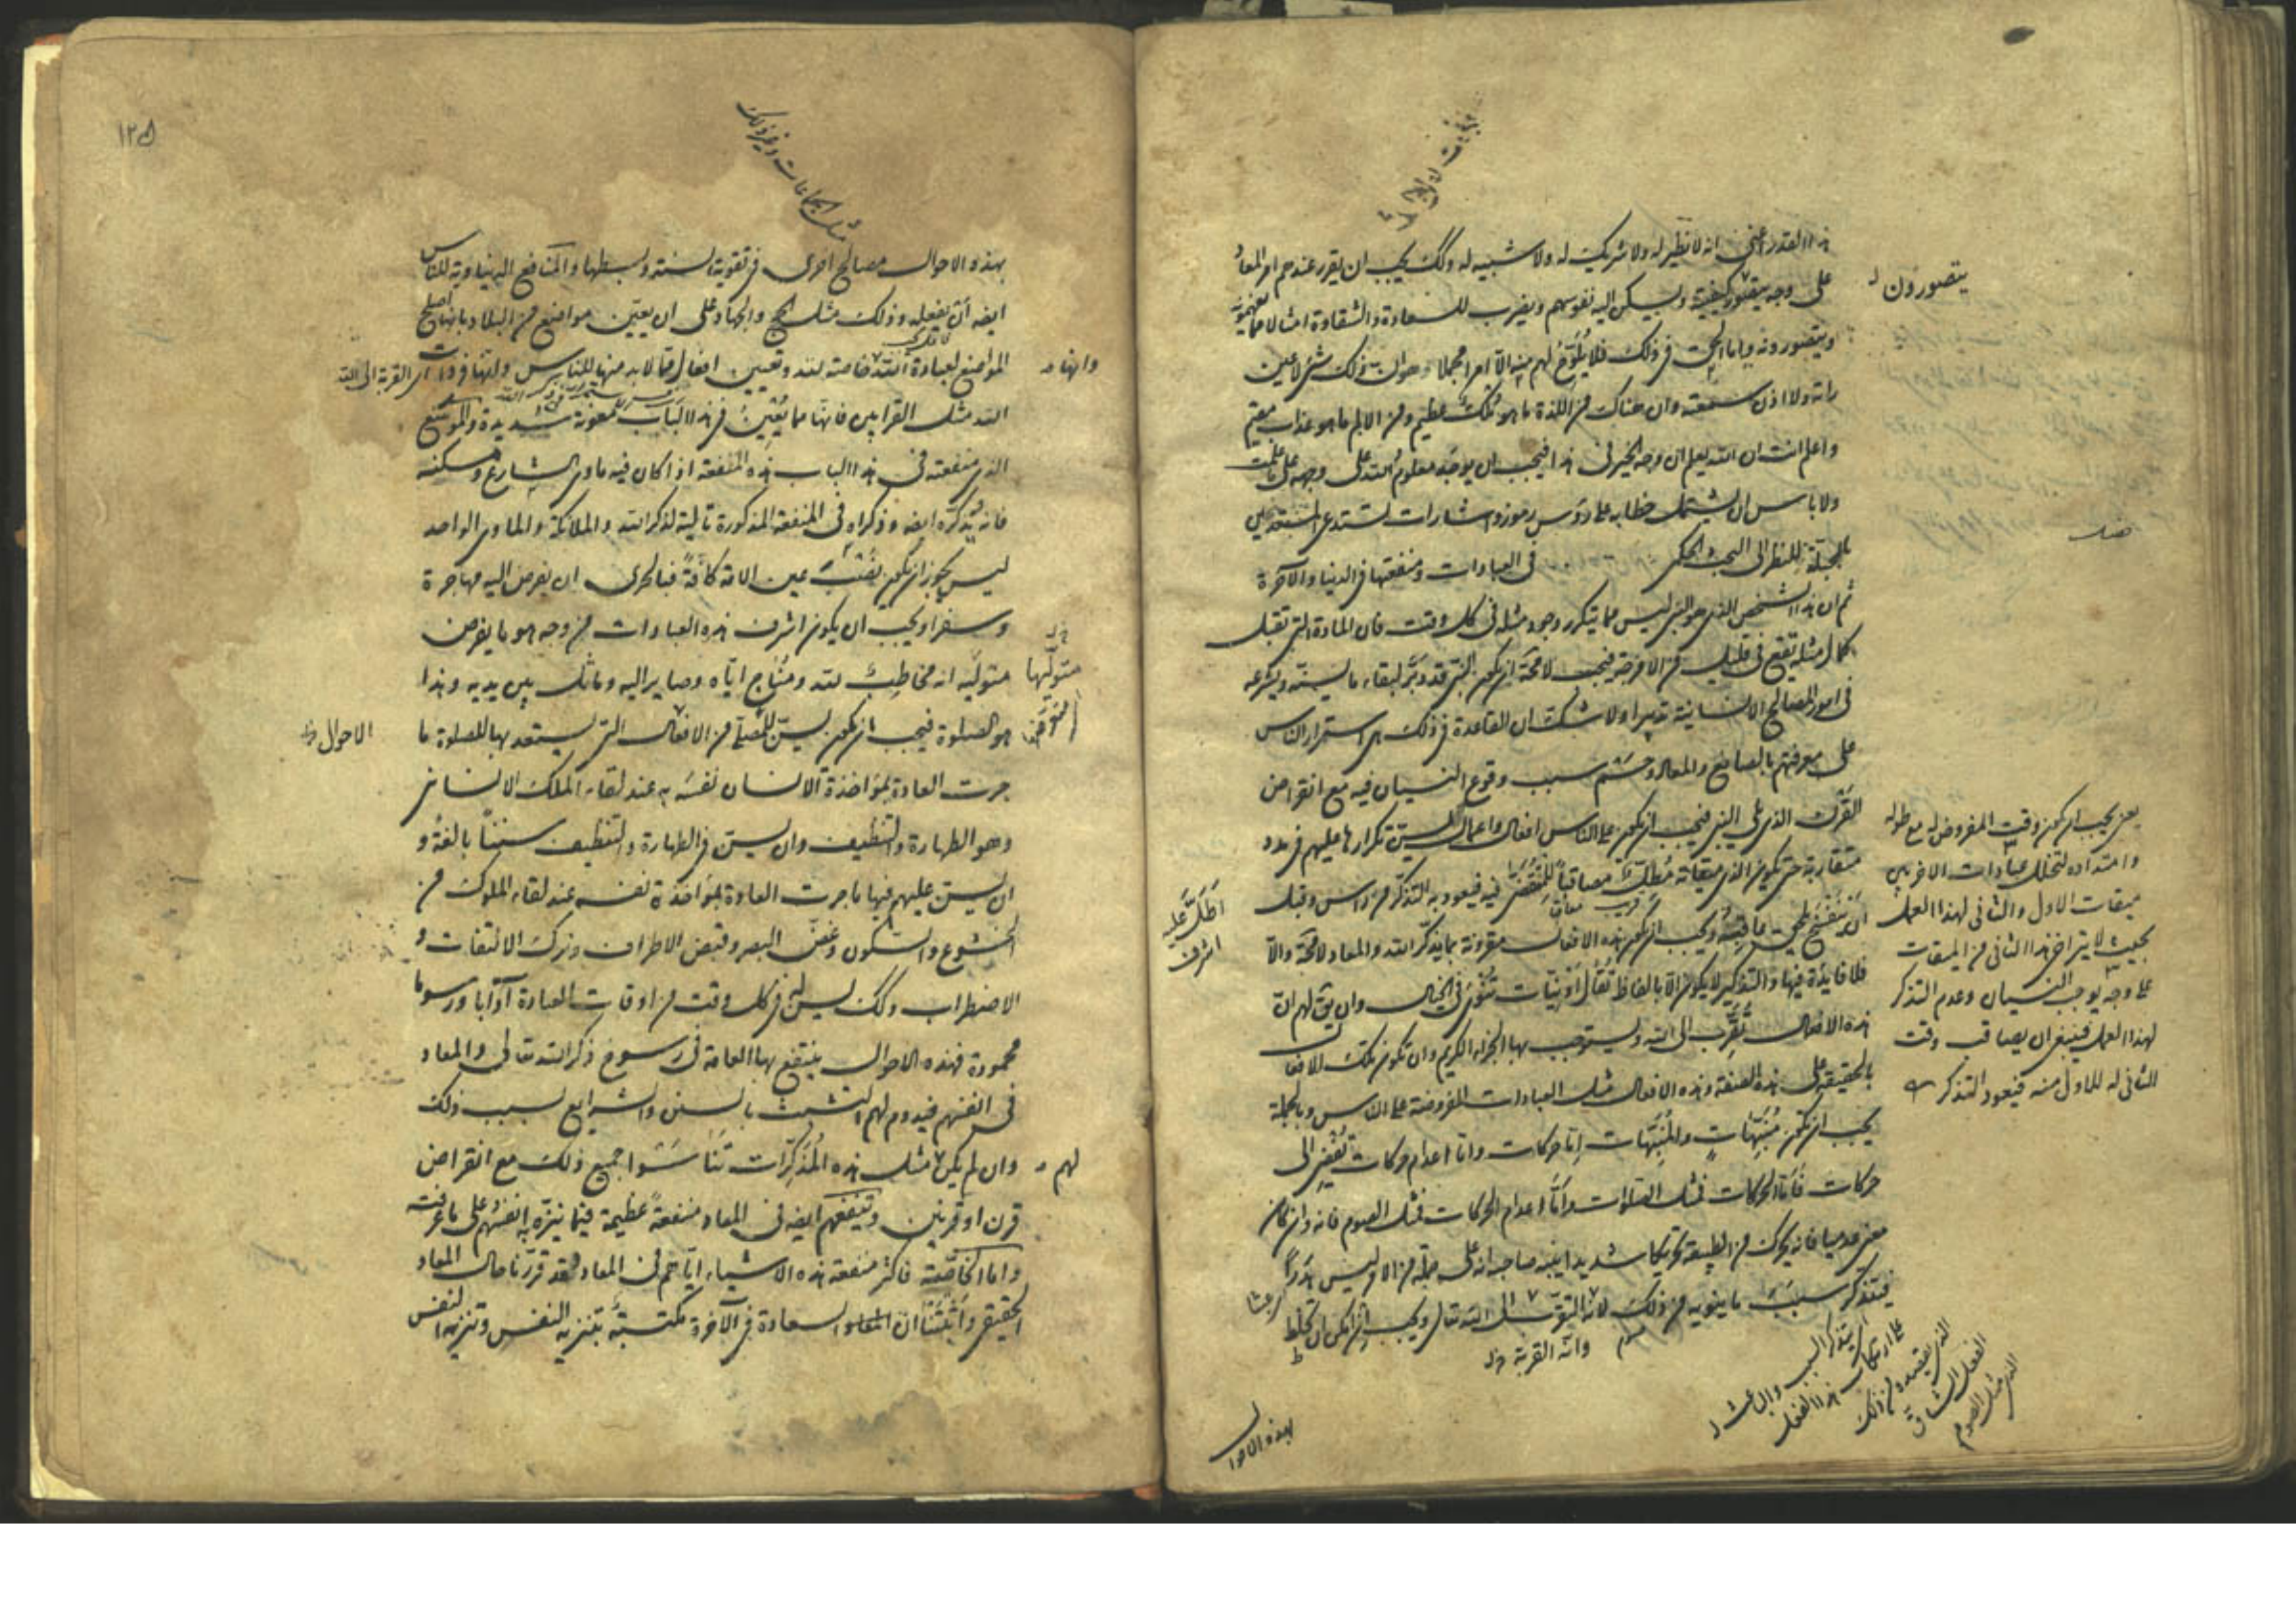 هذا القدر اعنى انه لا نظير له ولا شريك له ولا شبيه له وكك يجب ان يقرر عندهم امر المعاد
على وجه يتصور كيفيته ويسكن اليه نفوسهم ويضرب للسعادة والشقاوة امثالا مما يفهمونه
ويتصورونه واما الحق فى ذلك فلا يلوح لهم منه الا امرا مجملا وهو ان ذلك شئ لا عين
راته ولا اذن سمعته وان هناك من اللذة ما هو ملك عظيم ومن الالم ما هو عذاب مقيم
واعلم انت ان الله يعلم ان وجه الخير فى هذا فيجب ان يوجد معلوم الله على وجهه على ما علمت
ولا باس ان يشتمل خطابه على رموز واشارات تستدعى المستعدين
بالجبلة للنظر الى البحث الحكمى
فى العبادات ومنفعتها فى الدنيا والاخرة
ثم ان هذا الشخص الذى هو النبى ليس مما يتكرر وجود مثله فى كل وقت فان المادة التى تقبل
كمال مثله تقع فى قليل من الامزجة فيجب لا محة ان يكون النبى قد دبر لبقاء ما يسنه ويشرعه
فى امور المصالح الانسانية تدبيرا ولا شك ان القاعدة فى ذلك هى استمرار الناس
على معرفتهم بالصانع والمعاد وحسم سبب وقوع النسيان فيه مع انقراض
القرن الذى يلى النبى فيجب ان يكون على الناس افعال واعمال يسن تكرارها عليهم فى مدد
متقاربة حتى يكون الذى ميقاته مطل مصاقبا للمنقضى فيه فيعود به التذكر من راس وقبل
ان ينفسخ يلحق عاقبه ويجب ان يكون هذه الافعال مقرونة بما يذكر الله والمعاد لا محة والا
فلا فايدة فيها والتذكير لا يكون الا بالفاظ تقال او نيات تنوى فى الخيال وان يق لهم ان
هذه الافعال تقرب الى الله ويستوجب بها الجزاء الكريم وان تكون تلك الافعال
بالحقيقة على هذه الصفة وهذه الافعال مثل العبادات المفروضة على الناس وبالجملة
يجب ان تكون منبهات والمنبهات اما حركات واما اعدام حركات تفضى الى
حركات فاما الحركات فمثل الصلوات واما اعدام الحركات فمثل الصوم فانه وان كان
معنى عدميا فانه يحرك من الطبيعة تحريكا شديدا ينبه صاحبه انه على جملة من الامر ليس هدرا
فيتذكر سبب ما ينويه من ذلك لانه التقرب الى الله تعالى ويجب ان امكن ان يخلط
وانه القربة
بهذه الاحوال
يتصورون
يعنى يجب ان يكون وقت المفروض له مع طوله
وامتداده لتخلل عبادات الاخر بين
ميقات الاول والثانى لهذا العمل
بحيث لا يتراخى هذا الثانى من الميقات
على وجه يوجب النسيان وعدم التذكر
لهذا العمل فينبغى ان يصاقب وقت
الثانى له للاول منه فيعود التذكر
اطل عليه
اشرف
اى يتذكر السبب والباعث
على ارتكاب هذا الفعل
الذى يقصده من ذلك
الفعل الشاق
الذى مثل الصوم
١٢٥
مثل الجماعات وغير ذلك
بهذه الاحوال مصالح اخرى فى تقوية السنة وبسطها والمنافع الدنياوية للناس
ايضه ان يفعله وذلك مثل الحج والجهاد على ان يعين مواضع من البلاد بانها اصلح
المواضع لعبادة الله خاصة لله وتعيين افعال مما لا بد منها للناس وانها فى ذات الله
اى القربة الى الله
وانها
مثل القرابين فانها مما يعين فى هذا الباب معونة شديدة والموضع
الذى منفعته فى هذا الباب هذه المنفعة اذا كان فيه ماوى الشارع ومسكنه
فانه يذكره ايضه وذكراه فى المنفعة المذكورة تالية لذكر الله والملائكة والماوى الواحد
ليس يجوز ان يكون نصب عين الامة كافة فبالحرى ان يفرض اليه مهاجرة
وسفرا ويجب ان يكون اشرف هذه العبادات من وجه هو ما يفرض
متوليه انه مخاطب لله ومناج اياه وصاير اليه وماثل بين يديه وهذا
متوليها
هو الصلوة فيجب ان يكون يسن للمصلى من الافعال التى يستعد بها للصلوة ما
الاحوال
جرت العادة بمؤاخذة الانسان نفسه به عند لقاء الملك الانسانى
وهو الطهارة والتنظيف وان يسن فى الطهارة والتنظيف سننا بالغة و
ان يسن عليهم فيها ما جرت العادة بمؤاخذة نفسه عند لقاء الملوك من
الخشوع والسكون وغض البصر وقبض الاطراف وترك الالتفات و
الاضطراب وكك يسن له فى كل وقت من اوقات العبادة آدابا ورسوما
محمودة فهذه الاحوال ينتفع بها العامة فى رسوخ ذكر الله تعالى والمعاد
فى انفسهم فيدوم لهم التشبث بالسنن والشرايع بسبب ذلك
وان لم يكن مثل هذه المذكرات تناسوا جميع ذلك مع انقراض
لهم
قرن او قرنين وينفعهم ايضه فى المعاد منفعة عظيمة فيما ينزه به انفسهم على ما عرفته
واما الخاصة فاكثر منفعة هذه الاشياء اياهم فى المعاد فقد قررنا حال المعاد
الحقيقى واثبتنا ان السعادة فى الآخرة مكتسبة بتنزيه النفس وتنزيه النفس